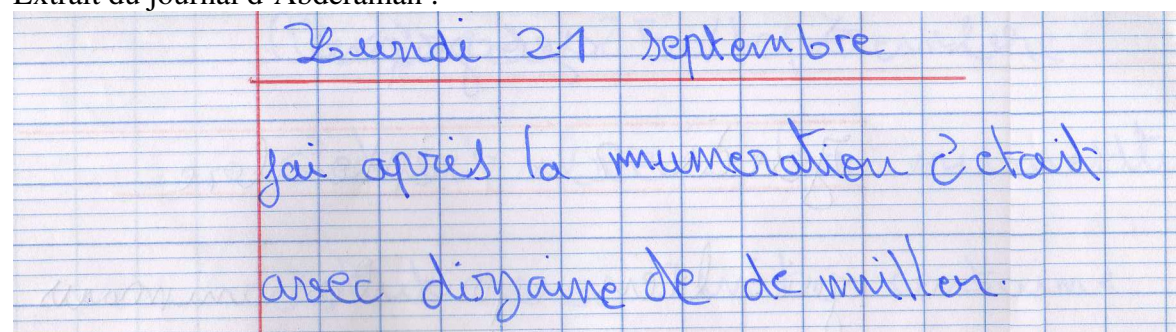 Extrait du journal d'Abderaman :
Lundi 21 septembre
jai après la mumeration c'etait
avec dizaine de de miller.